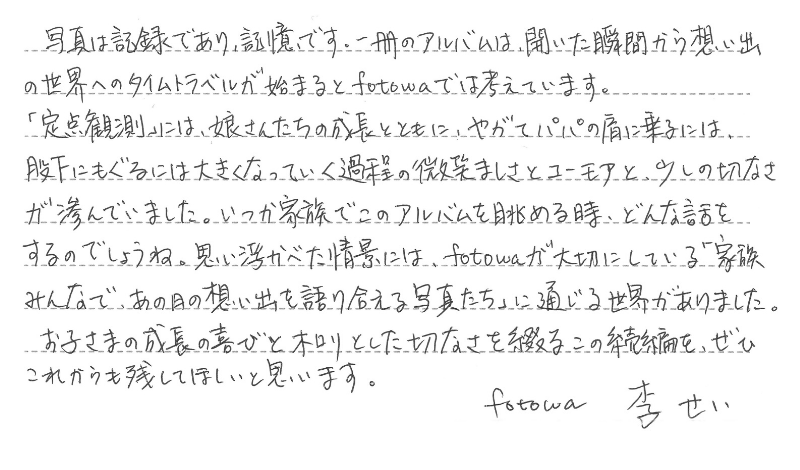 写真は記録であり、記憶です。一冊のアルバムは、開いた瞬間から想い出
の世界へのタイムトラベルが始まるとfotowaでは考えています。
「定点観測」には、娘さんたちの成長とともに、やがてパパの肩に乗るには、
股下にもぐるには大きくなっていく過程の微笑ましさとユーモアと、少しの切なさ
が滲んでいました。いつか家族でこのアルバムを眺める時、どんな話を
するのでしょうね。思い浮かべた情景には、fotowaが大切にしている「家族
みんなで、あの日の想い出を語り合える写真たち」に通じる世界がありました。
お子さまの成長の喜びとホロリとした切なさを綴るこの続編を、ぜひ
これからも残してほしいと思います。
fotowa 李 せい